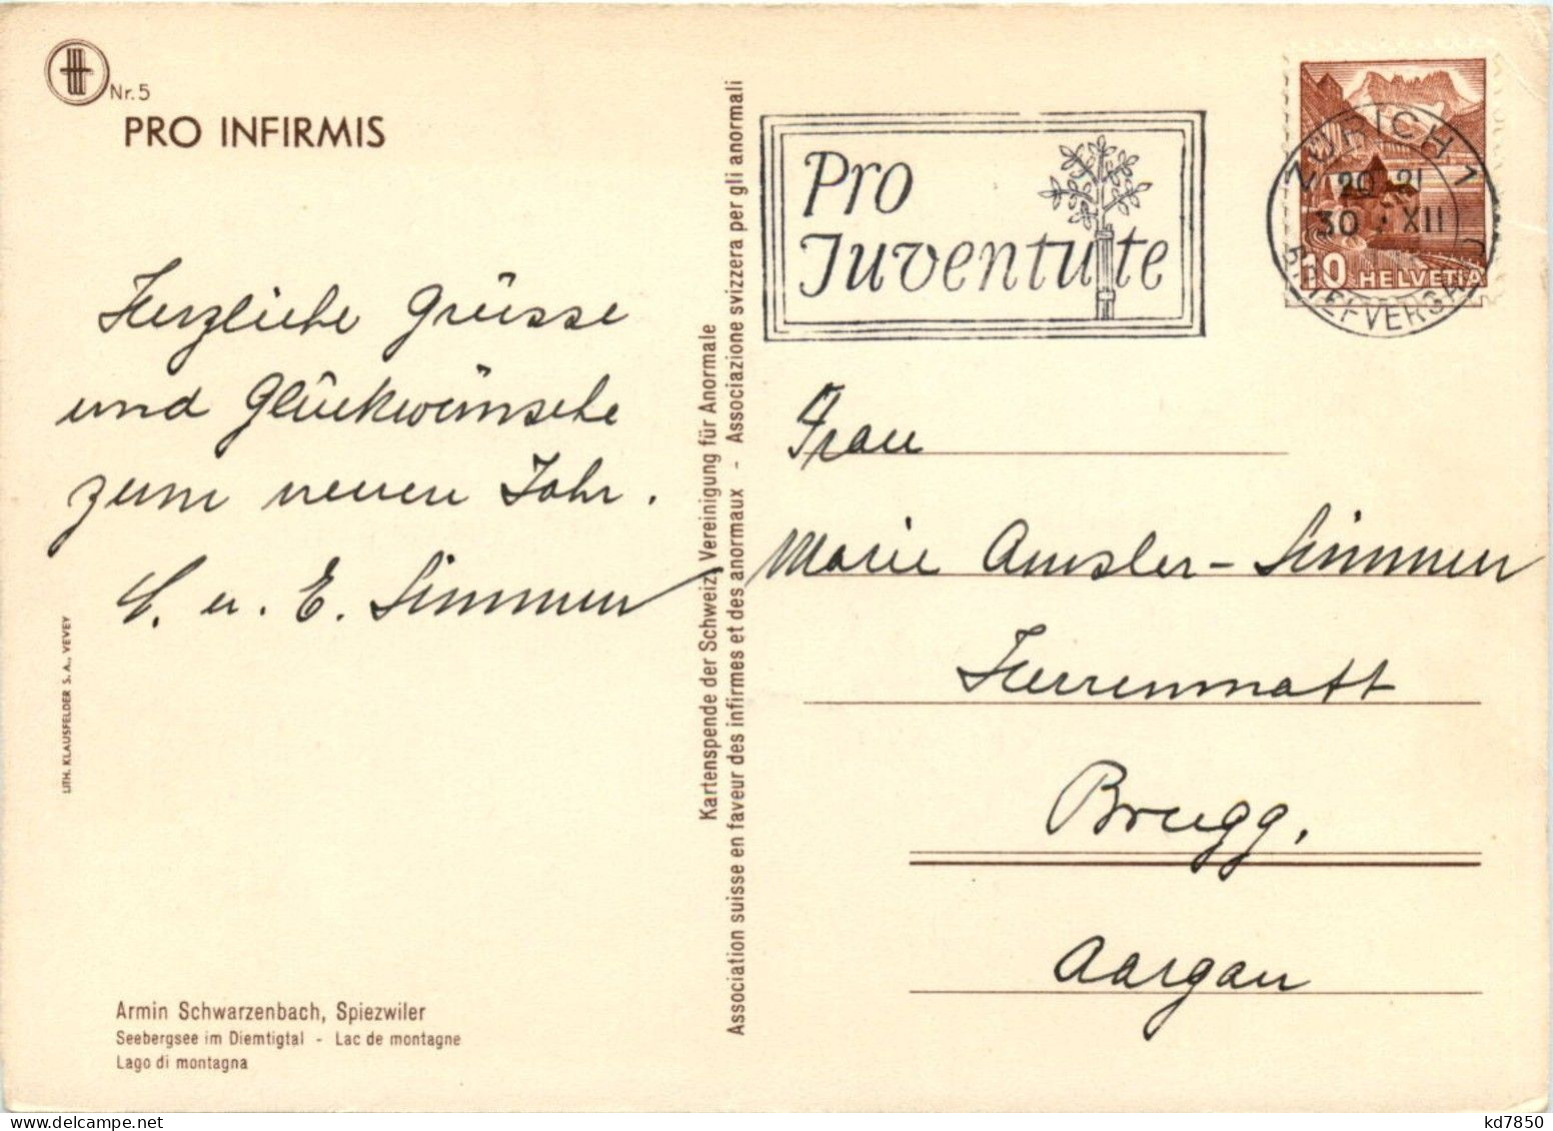 Nr. 5
PRO INFIRMIS
Herzliche Grüsse
und Glückwünsche
zum neuen Jahr.
E. Simmen
LITH. KLAUSFELDER S.A., VEVEY
Armin Schwarzenbach, Spiezwiler
Seebergsee im Diemtigtal - Lac de montagne
Lago di montagna
Kartenspende der Schweiz. Vereinigung für Anormale
Association suisse en faveur des infirmes et des anormaux - Associazione svizzera per gli anormali
Pro
Juventute
ZÜRICH 1
20-21
30. XII
10 HELVETIA
Frau
Marie Amsler-Simmen
Herrenmatt
Brugg,
Aargau
kd7850